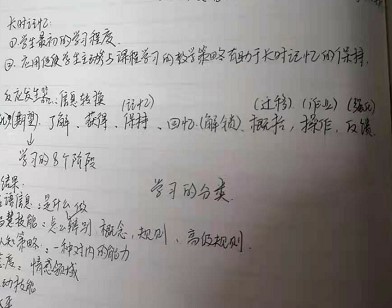 长时记忆:
①.学生最初的学习程度.
②.应用促使学生主动参与课程学习的教学策略有助于长时记忆的保持.
反应发生器. 信息转换 (记忆) (迁移) (作业) (强化)
(期望). 了解. 获得. 保持. 回忆(解锁). 概括, 操作, 反馈
学习的8个阶段
学习的分类
结果:
语信息: 是什么 做
慧技能: 怎么辨别 概念, 规则, 高级规则.
知策略: 一种对内的能力
态度: 情感领域
动技能